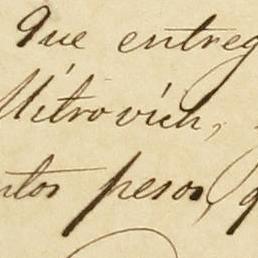 Que entreg
Mitrovich,
ntos pesos, q